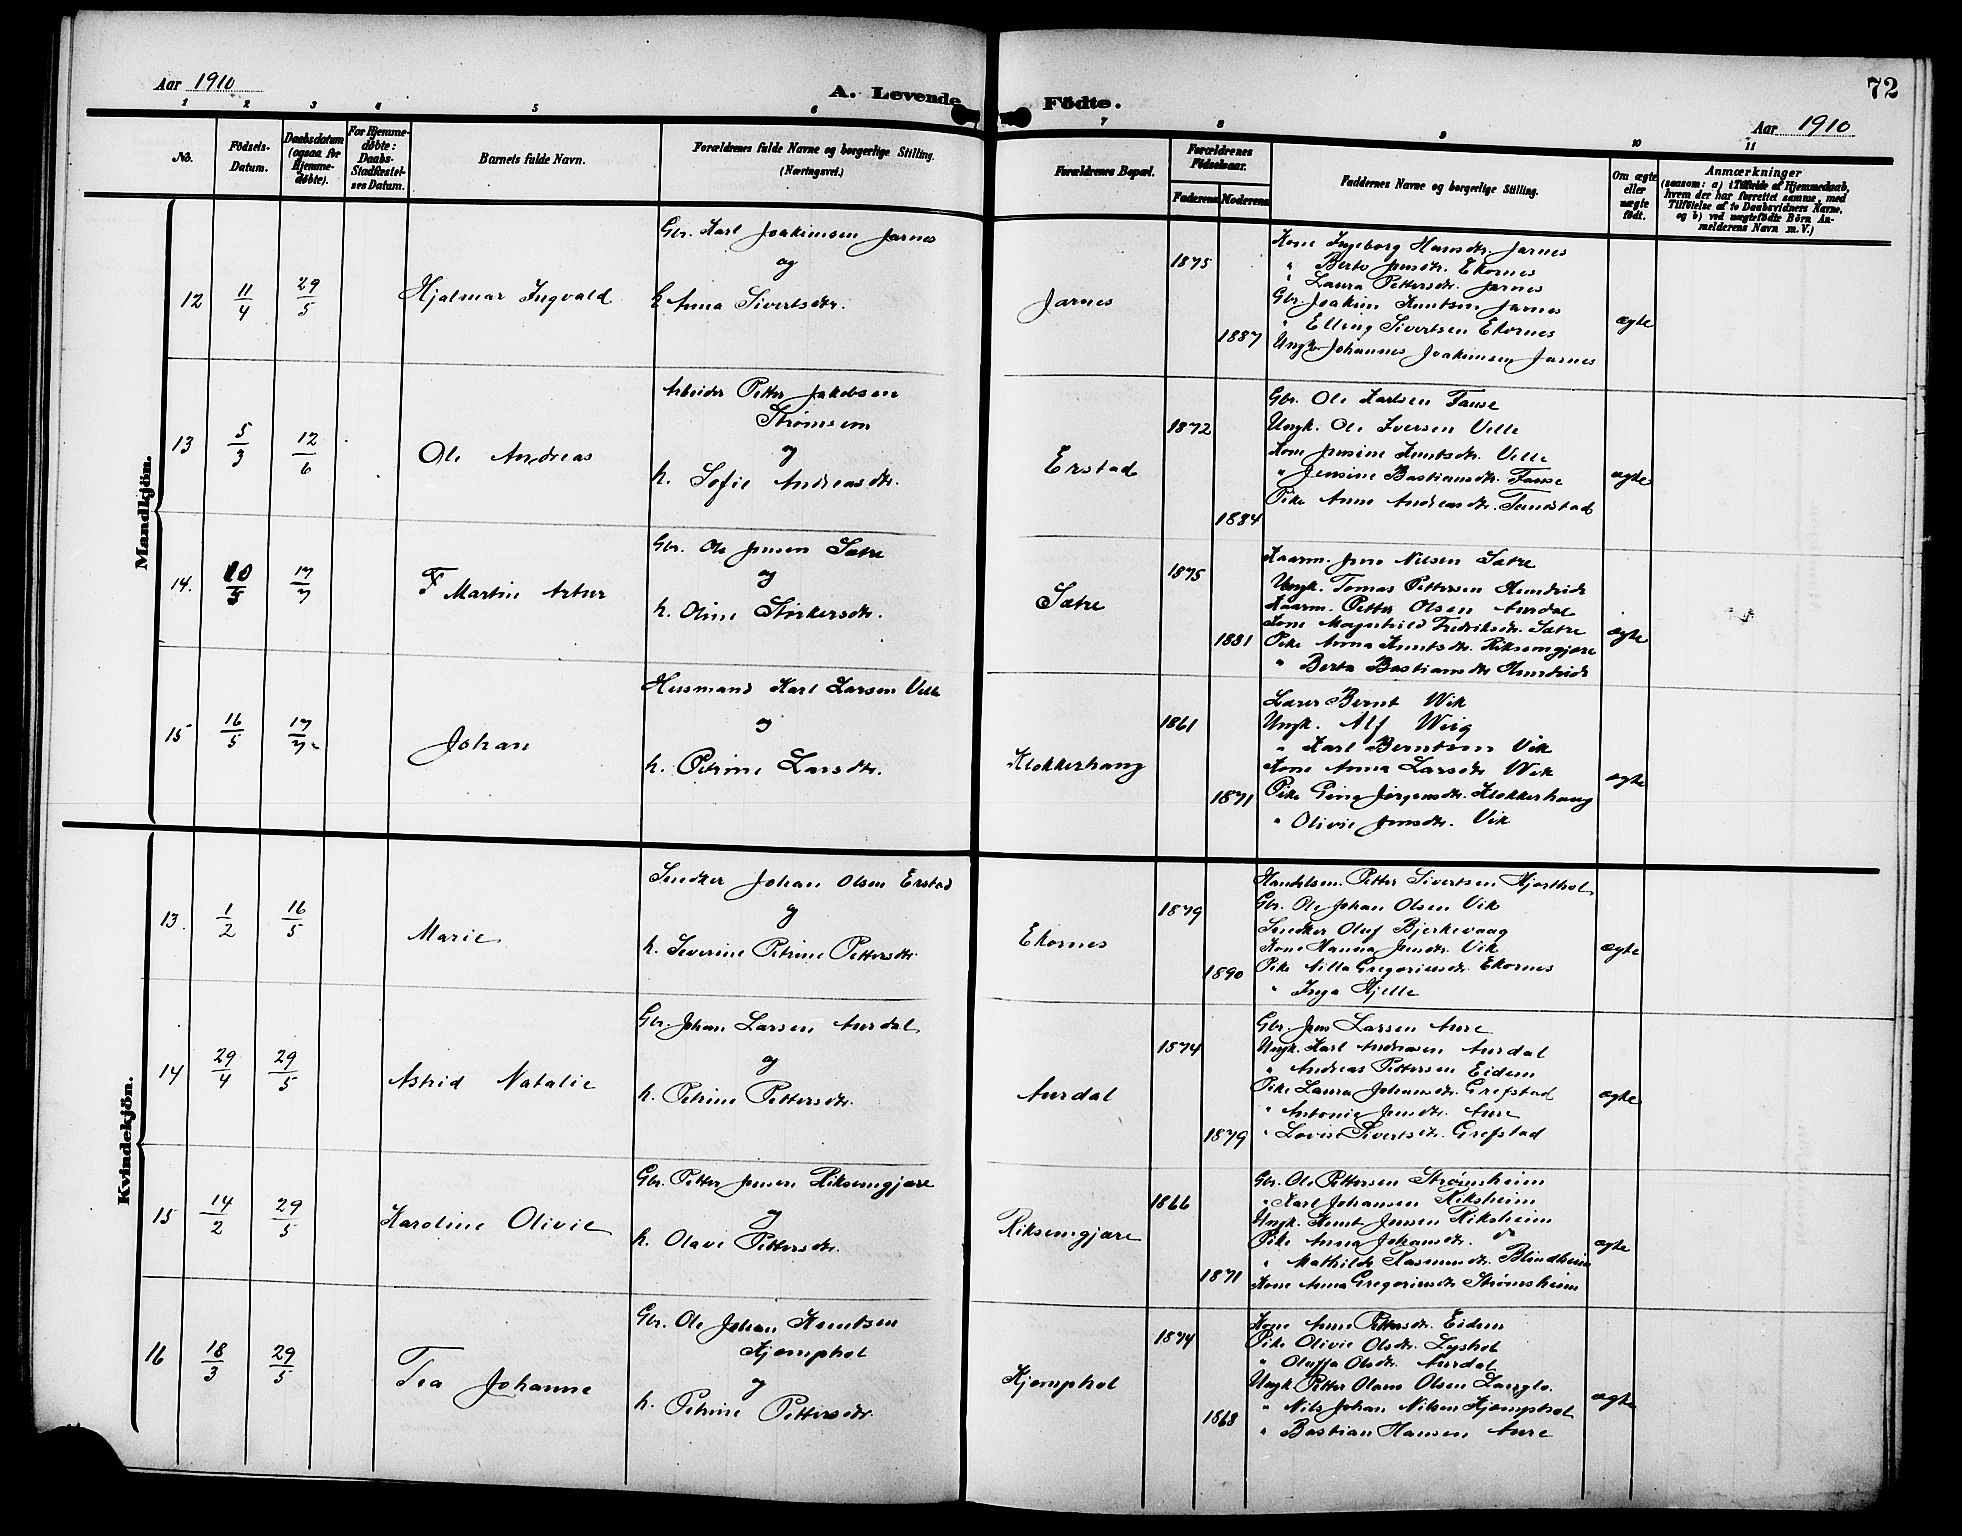 Aar 1910
A. Levende Födte.
72
Aar 1910
1 2 3 4 5 6 7 8 9 10 11
No.
Födsels-Datum.
Daabsdatum (ogsaa for Hjemme-døbte).
For Hjemme-døbte: Daabs-Stadfæstel-ses Datum.
Barnets fulde Navn.
Forældrenes fulde Navne og borgerlige Stilling. (Næringsvei.)
Forældrenes Bopæl.
Forældrenes Födselsaar.
Faderens Moderens
Faddernes Navne og borgerlige Stilling.
Om ægte eller uægte født.
Anmærkninger
(saasom: a) i Tilfælde af Hjemmedaab,
hvem der har forrettet samme, med
Tilføielse af to Daabsvidners Navne,
og b) ved uægtefødte Börn An-
melderens Navn m. V.)
Mandkjön.
12 11/4 29/5 Hjalmar Ingvald
Gbr. Karl Joakimsen Jarnes
og
h. Anna Sivertsdtr.
Jarnes
1875
1887
Kone Ingeborg Hansdtr. Jarnes
" Berte Jensdtr. Ekornes
" Laura Pettersdtr. Jarnes
Gbr. Joakim Knutsen Jarnes
" Elling Sivertsen Ekornes
Ungk. Johannes Joakimsen Jarnes
ægte
13 5/3 12/6 Ole Andreas
Arbeider Petter Jakobsen
Strømsem
og
h. Sofie Andreasdtr.
Erstad
1872
1884
Gbr. Ole Karlsen Fause
Ungk. Ole Iversen Velle
Kone Jensine Knutsdtr. Velle
" Jensine Bastiansdtr. Fause
Pike Anne Andreasdtr. Tunstad
ægte
14. 20/5 17/7 Martin Artur
Gbr. Ole Jensen Sætre
og
h. Oline Størkersdtr.
Sætre
1875
1881
Kaarm. Jens Nilsen Sætre
Ungk. Tomas Pettersen
Kaarm. Petter Olsen Aurdal
Kone Magnhild Fredriksdtr. Sætre
Pike Anna Knutsdtr. Riksemgjære
" Berta Bastiansdtr.
ægte
15 16/5 17/7 Johan
Husmand Karl Larsen Velle
og
h. Petrine Larsdtr.
Klokkerhaug
1861
1871
Lærer Bernt Wik
Ungk. Alf Wiig
" Karl Berntsen Vik
Kone Anna Larsdtr. Wik
Pike Gina Jørgensdtr. Klokkerhaug
" Olivie Jensdtr. Vik
ægte
Kvindekjön.
13. 1/2 16/5 Marie
Snedker Johan Olsen Erstad
og
h. Severine Petrine Pettersdtr.
Ekornes
1879
1890
Handelsm. Petter Sivertsen Hjorthol
Gbr. Ole Johan Olsen Vik
Snedker Oluf Bjerkevaag
Kone Hanna Jensdtr. Vik
Pike Nilla Gregoriusdtr. Ekornes
" Inga Hjelle
ægte
14 29/4 29/5 Astrid Natalie
Gbr. Johan Larsen Aurdal
og
h. Petrine Pettersdtr.
Aurdal
1874
1879
Gbr. Jens Larsen Aure
Ungk. Karl Andreasen Aurdal
" Andreas Pettersen Eidem
Pike Laura Johansdtr. Grefstad
" Antonie Jensdtr. Aure
" Lovise Sivertsdtr. Grefstad
ægte
15 14/2 29/5 Karoline Olivie
Gbr. Petter Jensen Riksemgjære
og
h. Olave Pettersdtr.
Riksemgjære
1866
1871
Gbr. Ole Pettersen Strømsheim
" Karl Johansen Riksheim
Ungk. Knut Jensen Riksheim
Pike Anna Johansdtr. do
" Mathilde Rasmusdtr. Blindheim
Kone Anna Gregoriusdtr. Strømsheim
ægte
16 18/3 29/5 Tea Johanne
Gbr. Ole Johan Knutsen
Kjemphol
og
h. Petrine Pettersdtr.
Kjemphol
1874
1868
Kone Anne Pettersdtr. Eidem
Pike Olivie Olsdtr. Lyshol
" Oluffa Olsdtr. Aurdal
Ungk. Petter Olaus Olsen Langlo.
" Nils Johan Nilsen Kjemphol
" Bastian Hansen Aure
ægte